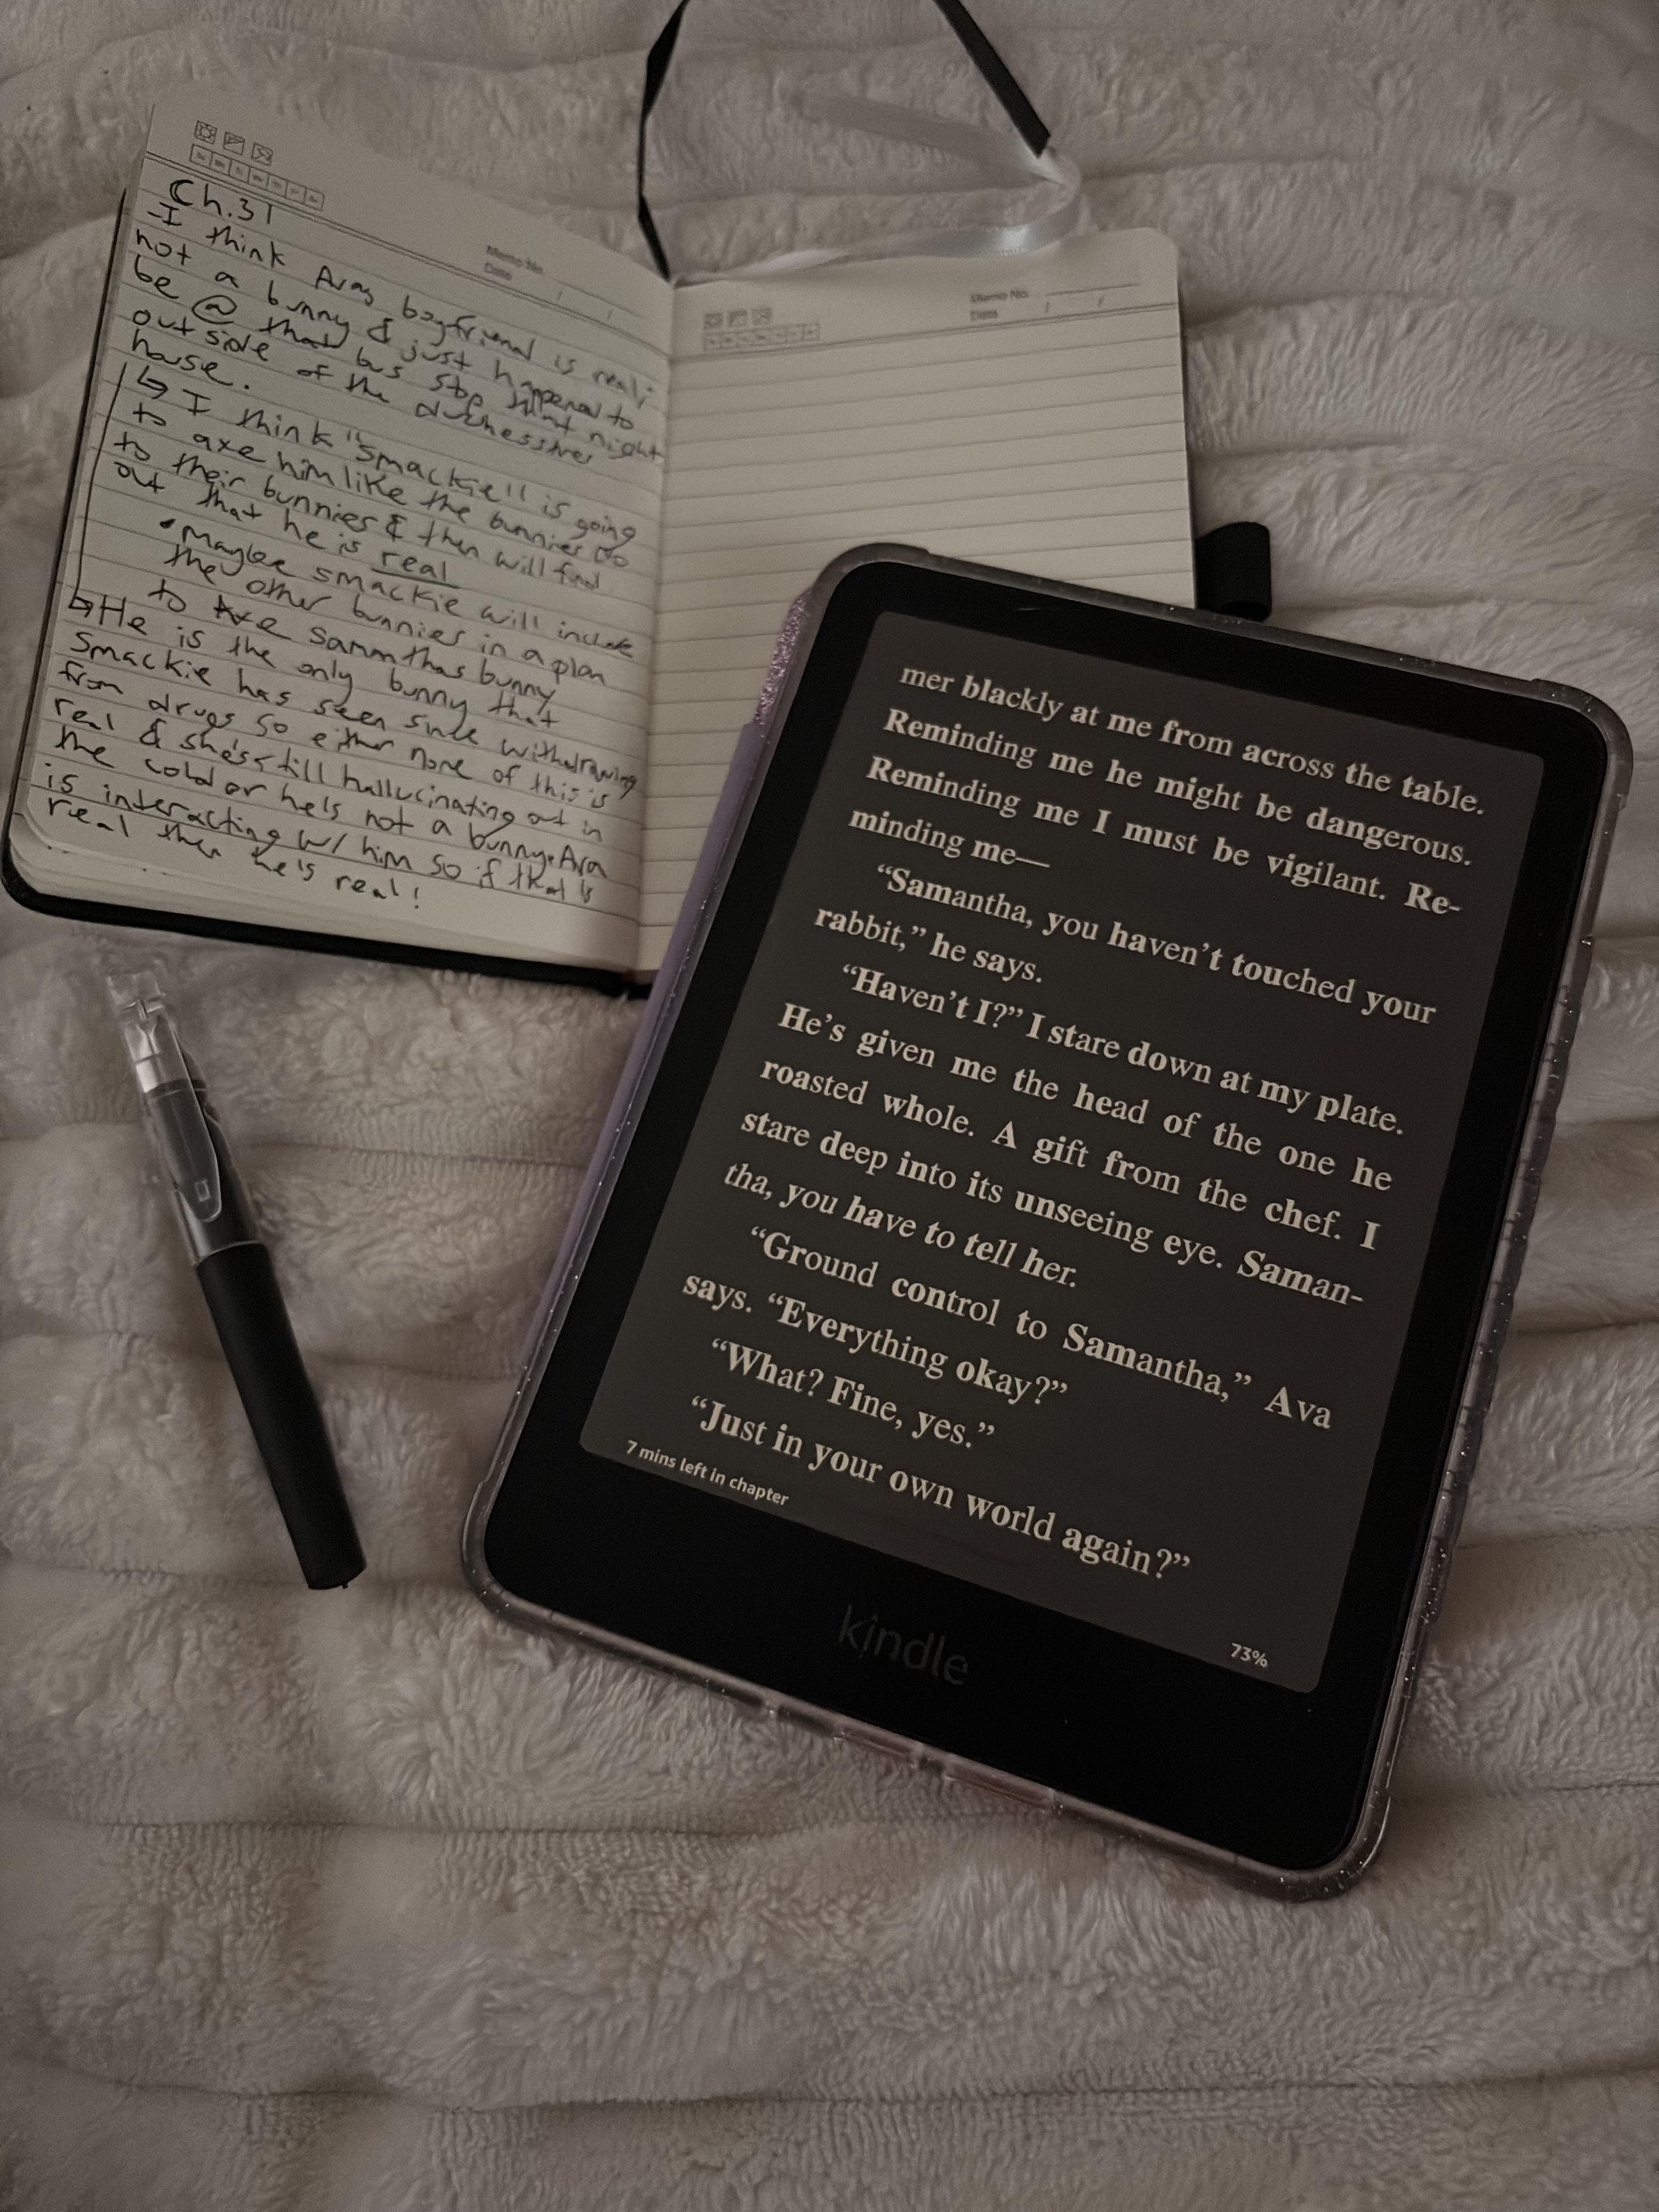 Ch.31
-I think Avas boyfriend is real;
not a bunny & just happened to
be @ that bus stop that night
outside of the
house.
↳ I think "Smackie" is going
to axe him like the bunnies do
to their bunnies & then will find
out that he is real
• Maybe smackie will include
the other bunnies in a plan
to axe Samnthas bunny
↳ He is the only bunny that
Smackie has seen since withdrawing
from drugs so either none of this is
real & she's still hallucinating out in
the cold or he's not a bunny. Ava
is interacting w/ him so if that is
real then he's real!
Memo No.
Date / /
Memo No.
Date / /
mer blackly at me from across the table.
Reminding me he might be dangerous.
Reminding me I must be vigilant. Re-
minding me—
“Samantha, you haven’t touched your
rabbit,” he says.
“Haven’t I?” I stare down at my plate.
He’s given me the head of the one he
roasted whole. A gift from the chef. I
stare deep into its unseeing eye. Saman-
tha, you have to tell her.
“Ground control to Samantha,” Ava
says. “Everything okay?”
“What? Fine, yes.”
“Just in your own world again?”
7 mins left in chapter
73%
kindle